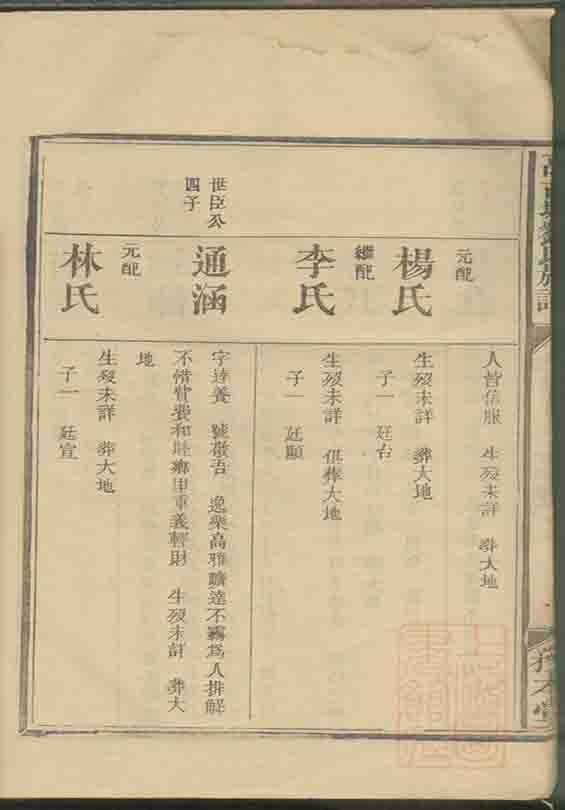 人皆信服 生歿未詳 葬大地
元配
楊氏
生歿未詳 葬大地
子一 廷台
繼配
李氏
生歿未詳 俱葬大地
子一 廷顯
世臣公
四子
通涵
字達養 號敬吾 逸樂高雅曠達不霧為人排解
不惜貲費和睦鄉里重義輕財 生歿未詳 葬大
地
元配
林氏
生歿未詳 葬大地
子一 廷宣